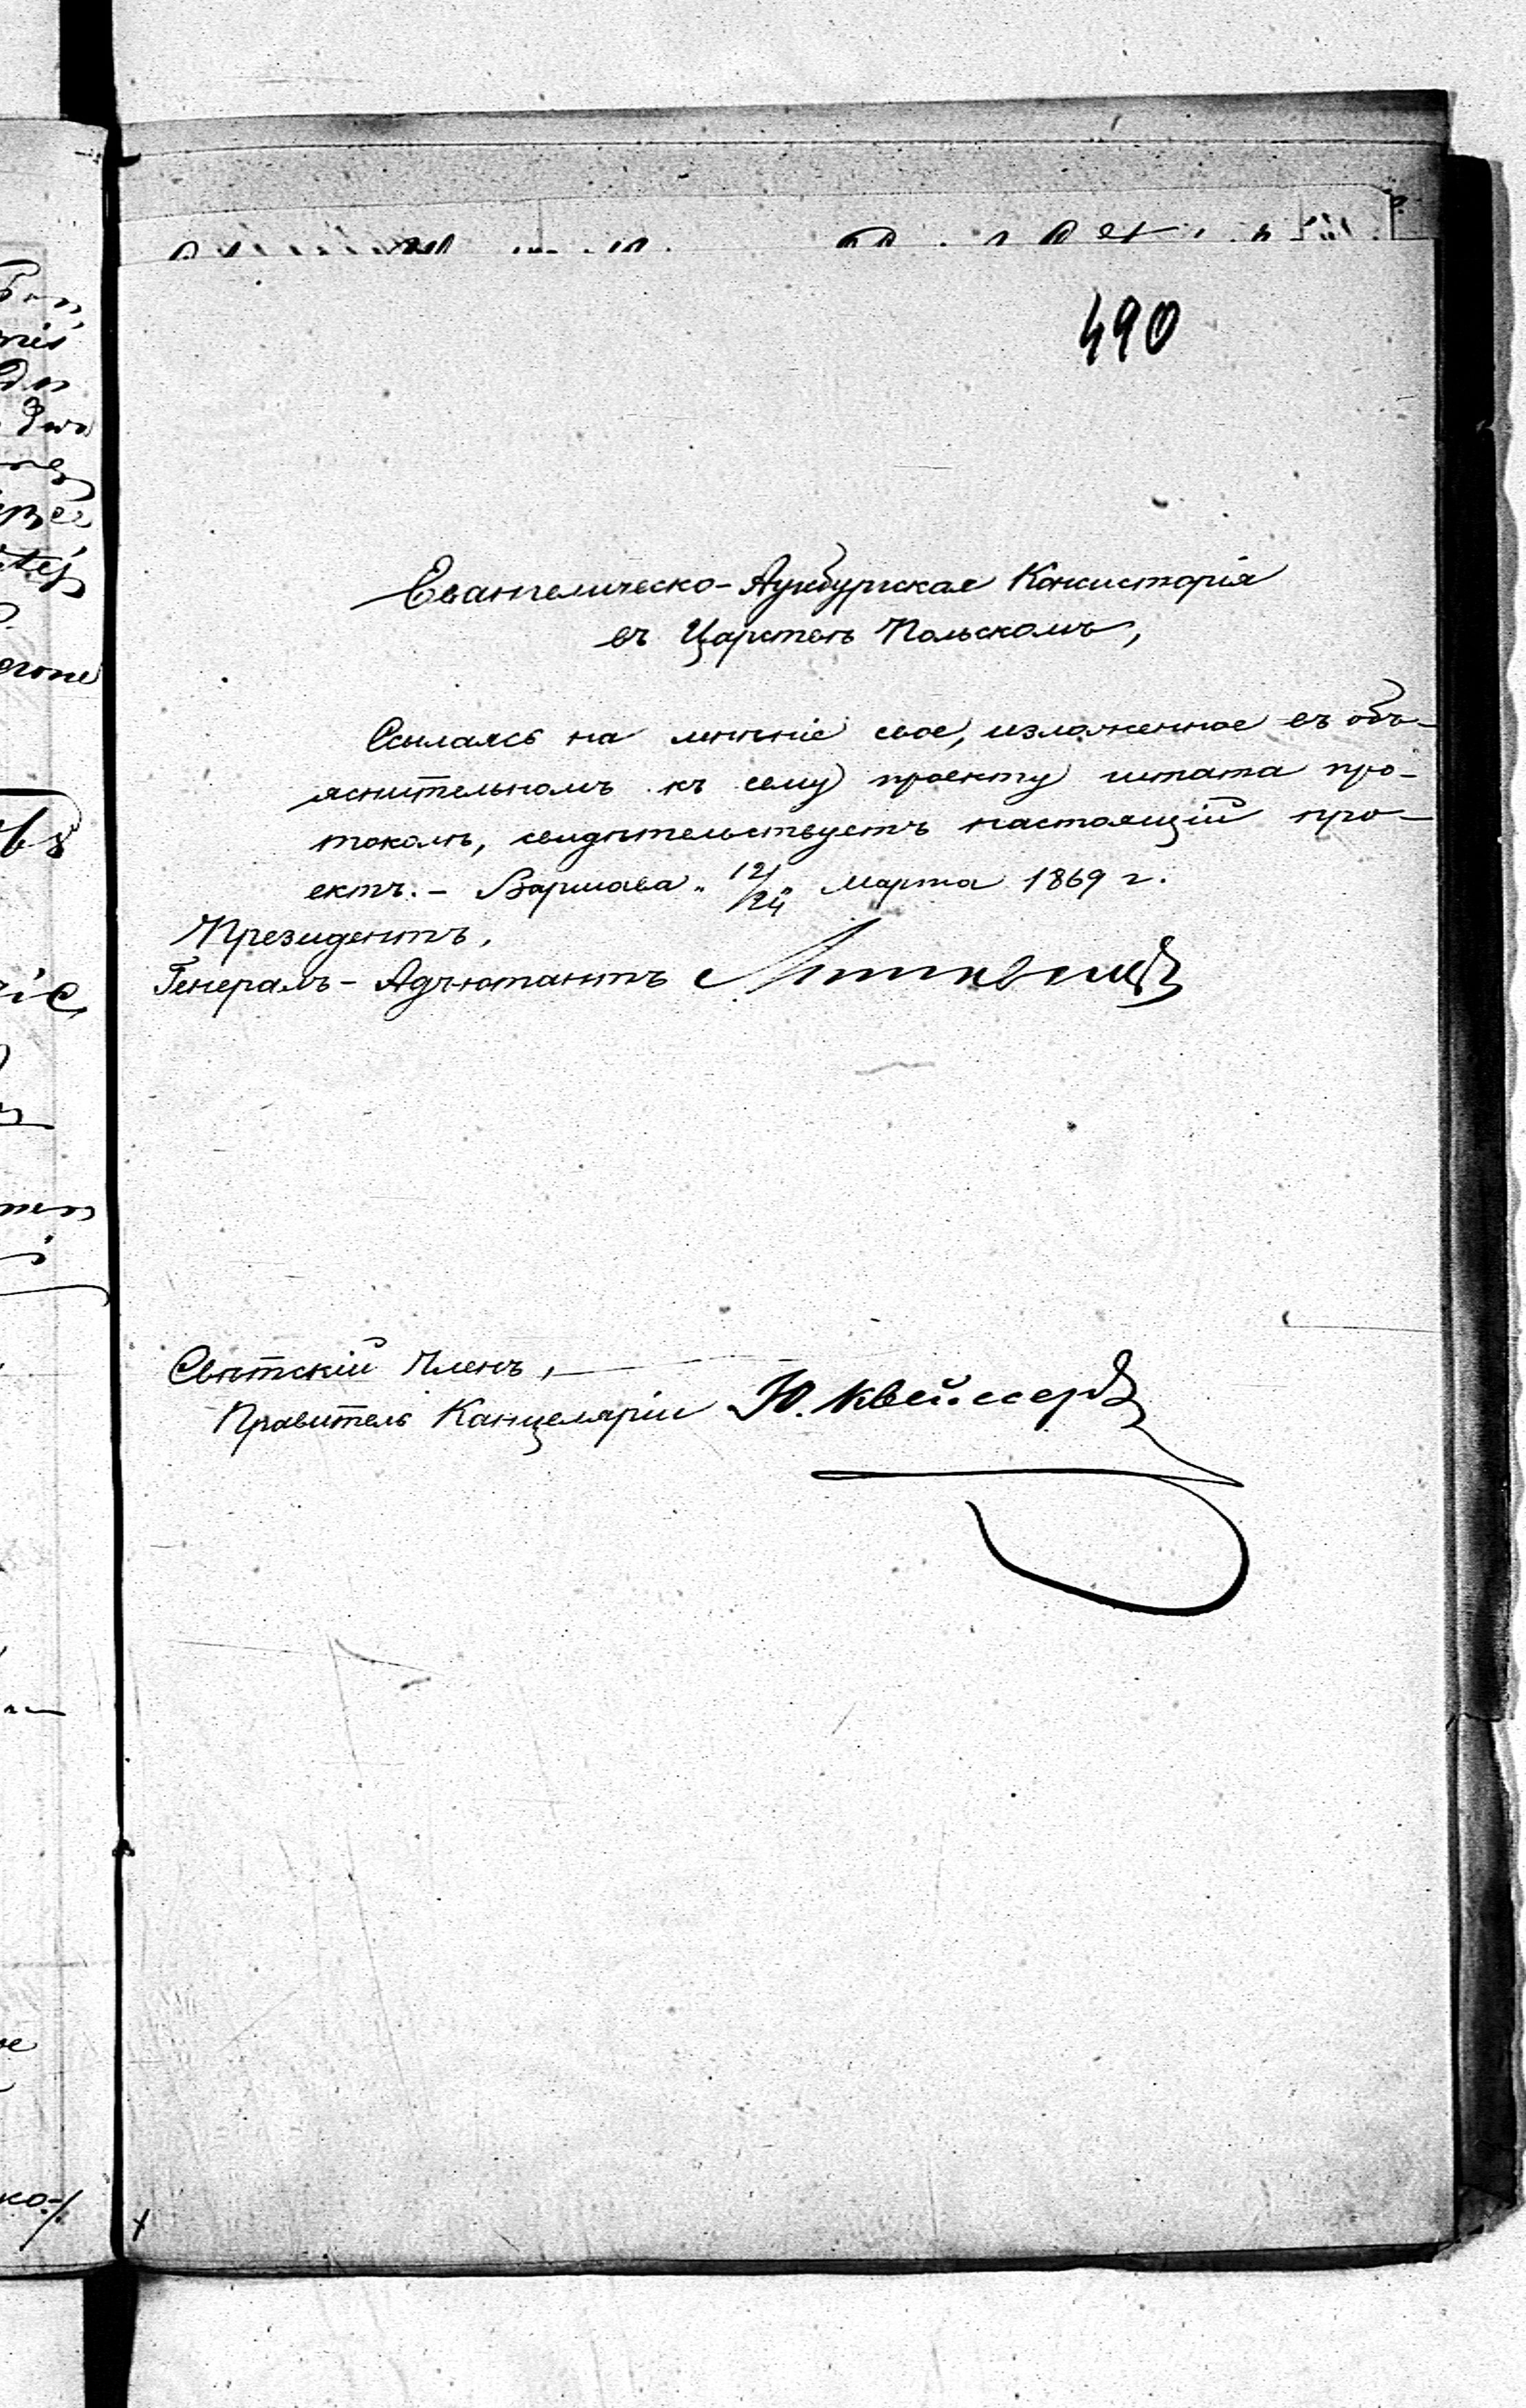 490
Евангелическо-Аугсбургская Консисторія
въ Царствѣ Польскомъ,
Ссылаясь на мнѣніе свое, изложенное въ объ-
яснительномъ къ сему проекту штата про-
токолѣ, свидѣтельствуетъ настоящій про-
ектъ. - Варшава „ 12/24 Марта 1869 г.
Президентъ,
Генералъ-Адъютантъ
Свѣтскій Членъ,
Правитель Канцеляріи Ю. Квейссеръ